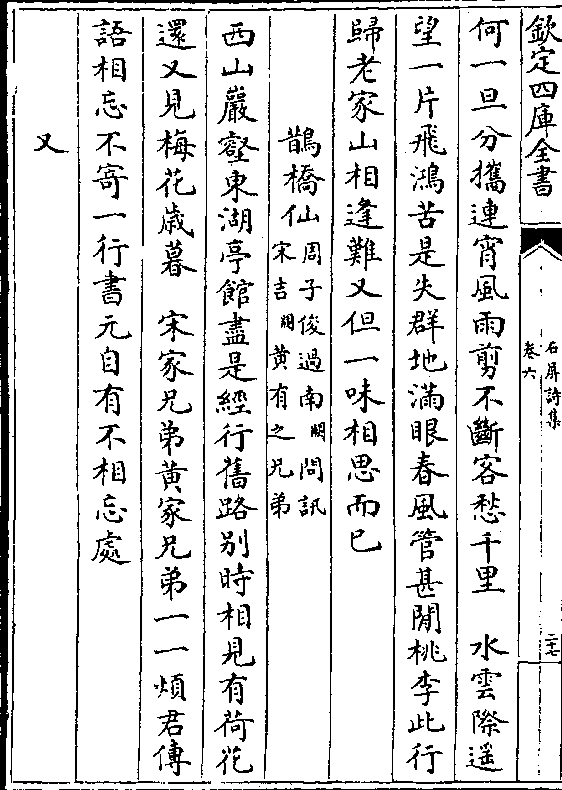 欽定四庫全書
石屏詩集
卷六
二七
何一旦分攜連宵風雨剪不斷客愁千里　水雲際遥
望一片飛鴻苦是失群地滿眼春風管甚閒桃李此行
歸老家山相逢難又但一味相思而已
鵲橋仙
周子俊過南
問訊
宋吉
黄有之兄弟
西山巖壑東湖亭館盡是經行舊路别時相見有荷花
還又見梅花歲暮　宋家兄弟黄家兄弟一一煩君傳
語相忘不寄一行書元自有不相忘處
又